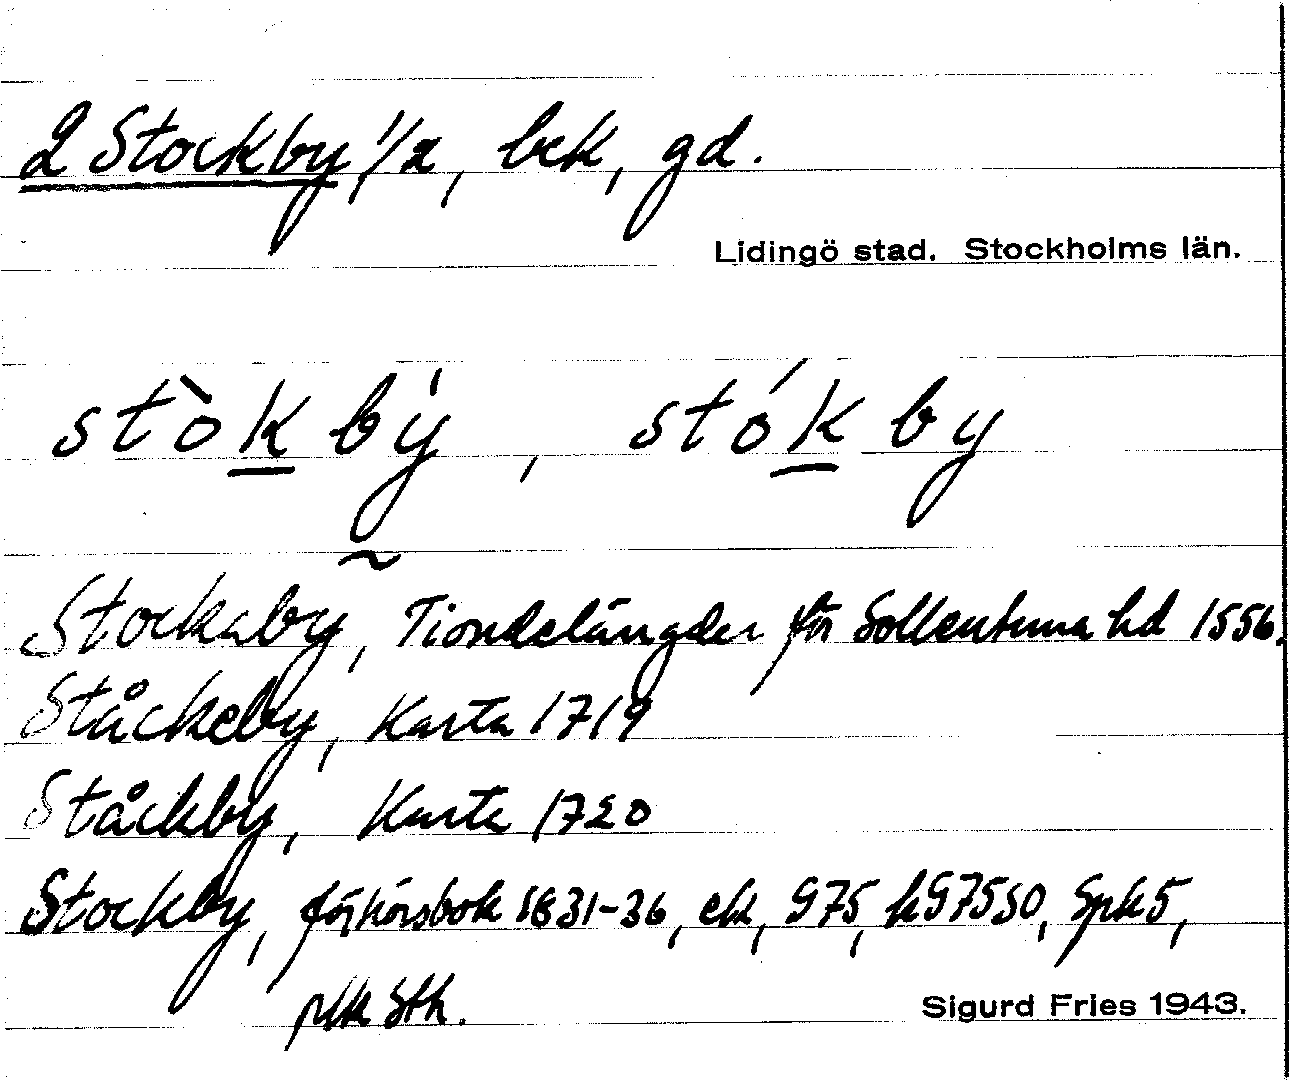 2 Stockby 1/2, bek, gd.
Lidingö stad. Stockholms län.
stòkbẏ, stókby
Stockaby, Tiondelängder för Sollentuna hd 1556.
Ståckeby, Karta 1719
Ståckby, Karta 1720
Stockby, förhörsbok 1831-36, ek, G75, hG75SO, Spk5,
plk Sth.
Sigurd Fries 1943.